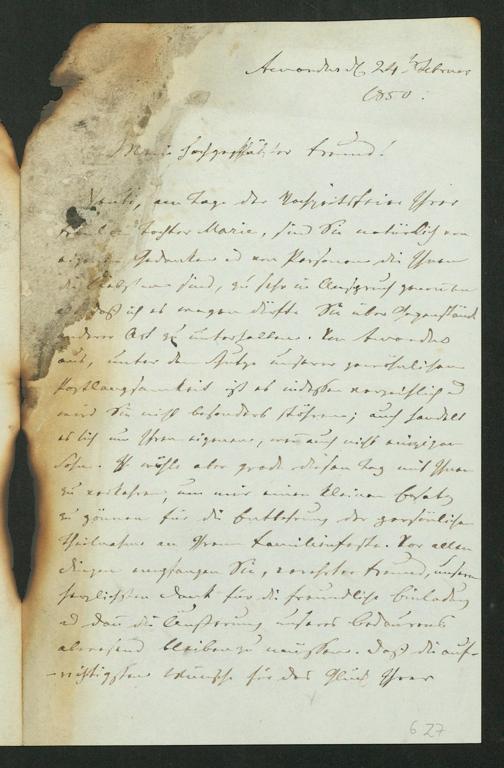 24 Februar
1850.
Mein hochgeschätzter Freund!
Heute, am Tage der Hochzeitsfeier Ihrer
Tochter Marie, sind Sie natürlich von
Gedanken und von Personen, die Ihnen
die sind, zu sehr in Anspruch genommen
daß ich es wagen dürfte Sie über Gegenstände
anderer Art zu unterhalten. Von
aus, unter dem Schutze unserer gewöhnlichen
Postlangsamkeit ist es indessen verzeihlich u
wird Sie nicht besonders stören; auch handelt
es sich um Ihren eigenen, wenn auch nicht einzigen
Sohn. Ich wähle aber grade diesen Tag mit Ihnen
zu verkehren, um mir einen kleinen Ersatz
zu gönnen für die Entbehrung der persönlichen
Theilnahme an Ihrem Familienfeste. Vor allen
Dingen empfangen Sie, verehrter Freund, unsern
herzlichsten Dank für die freundliche Einladung
und dann die Äußerung unseres Bedauerns
abwesend bleiben zu müssen. Daß die auf-
richtigsten Wünsche für das Glück Ihrer
627